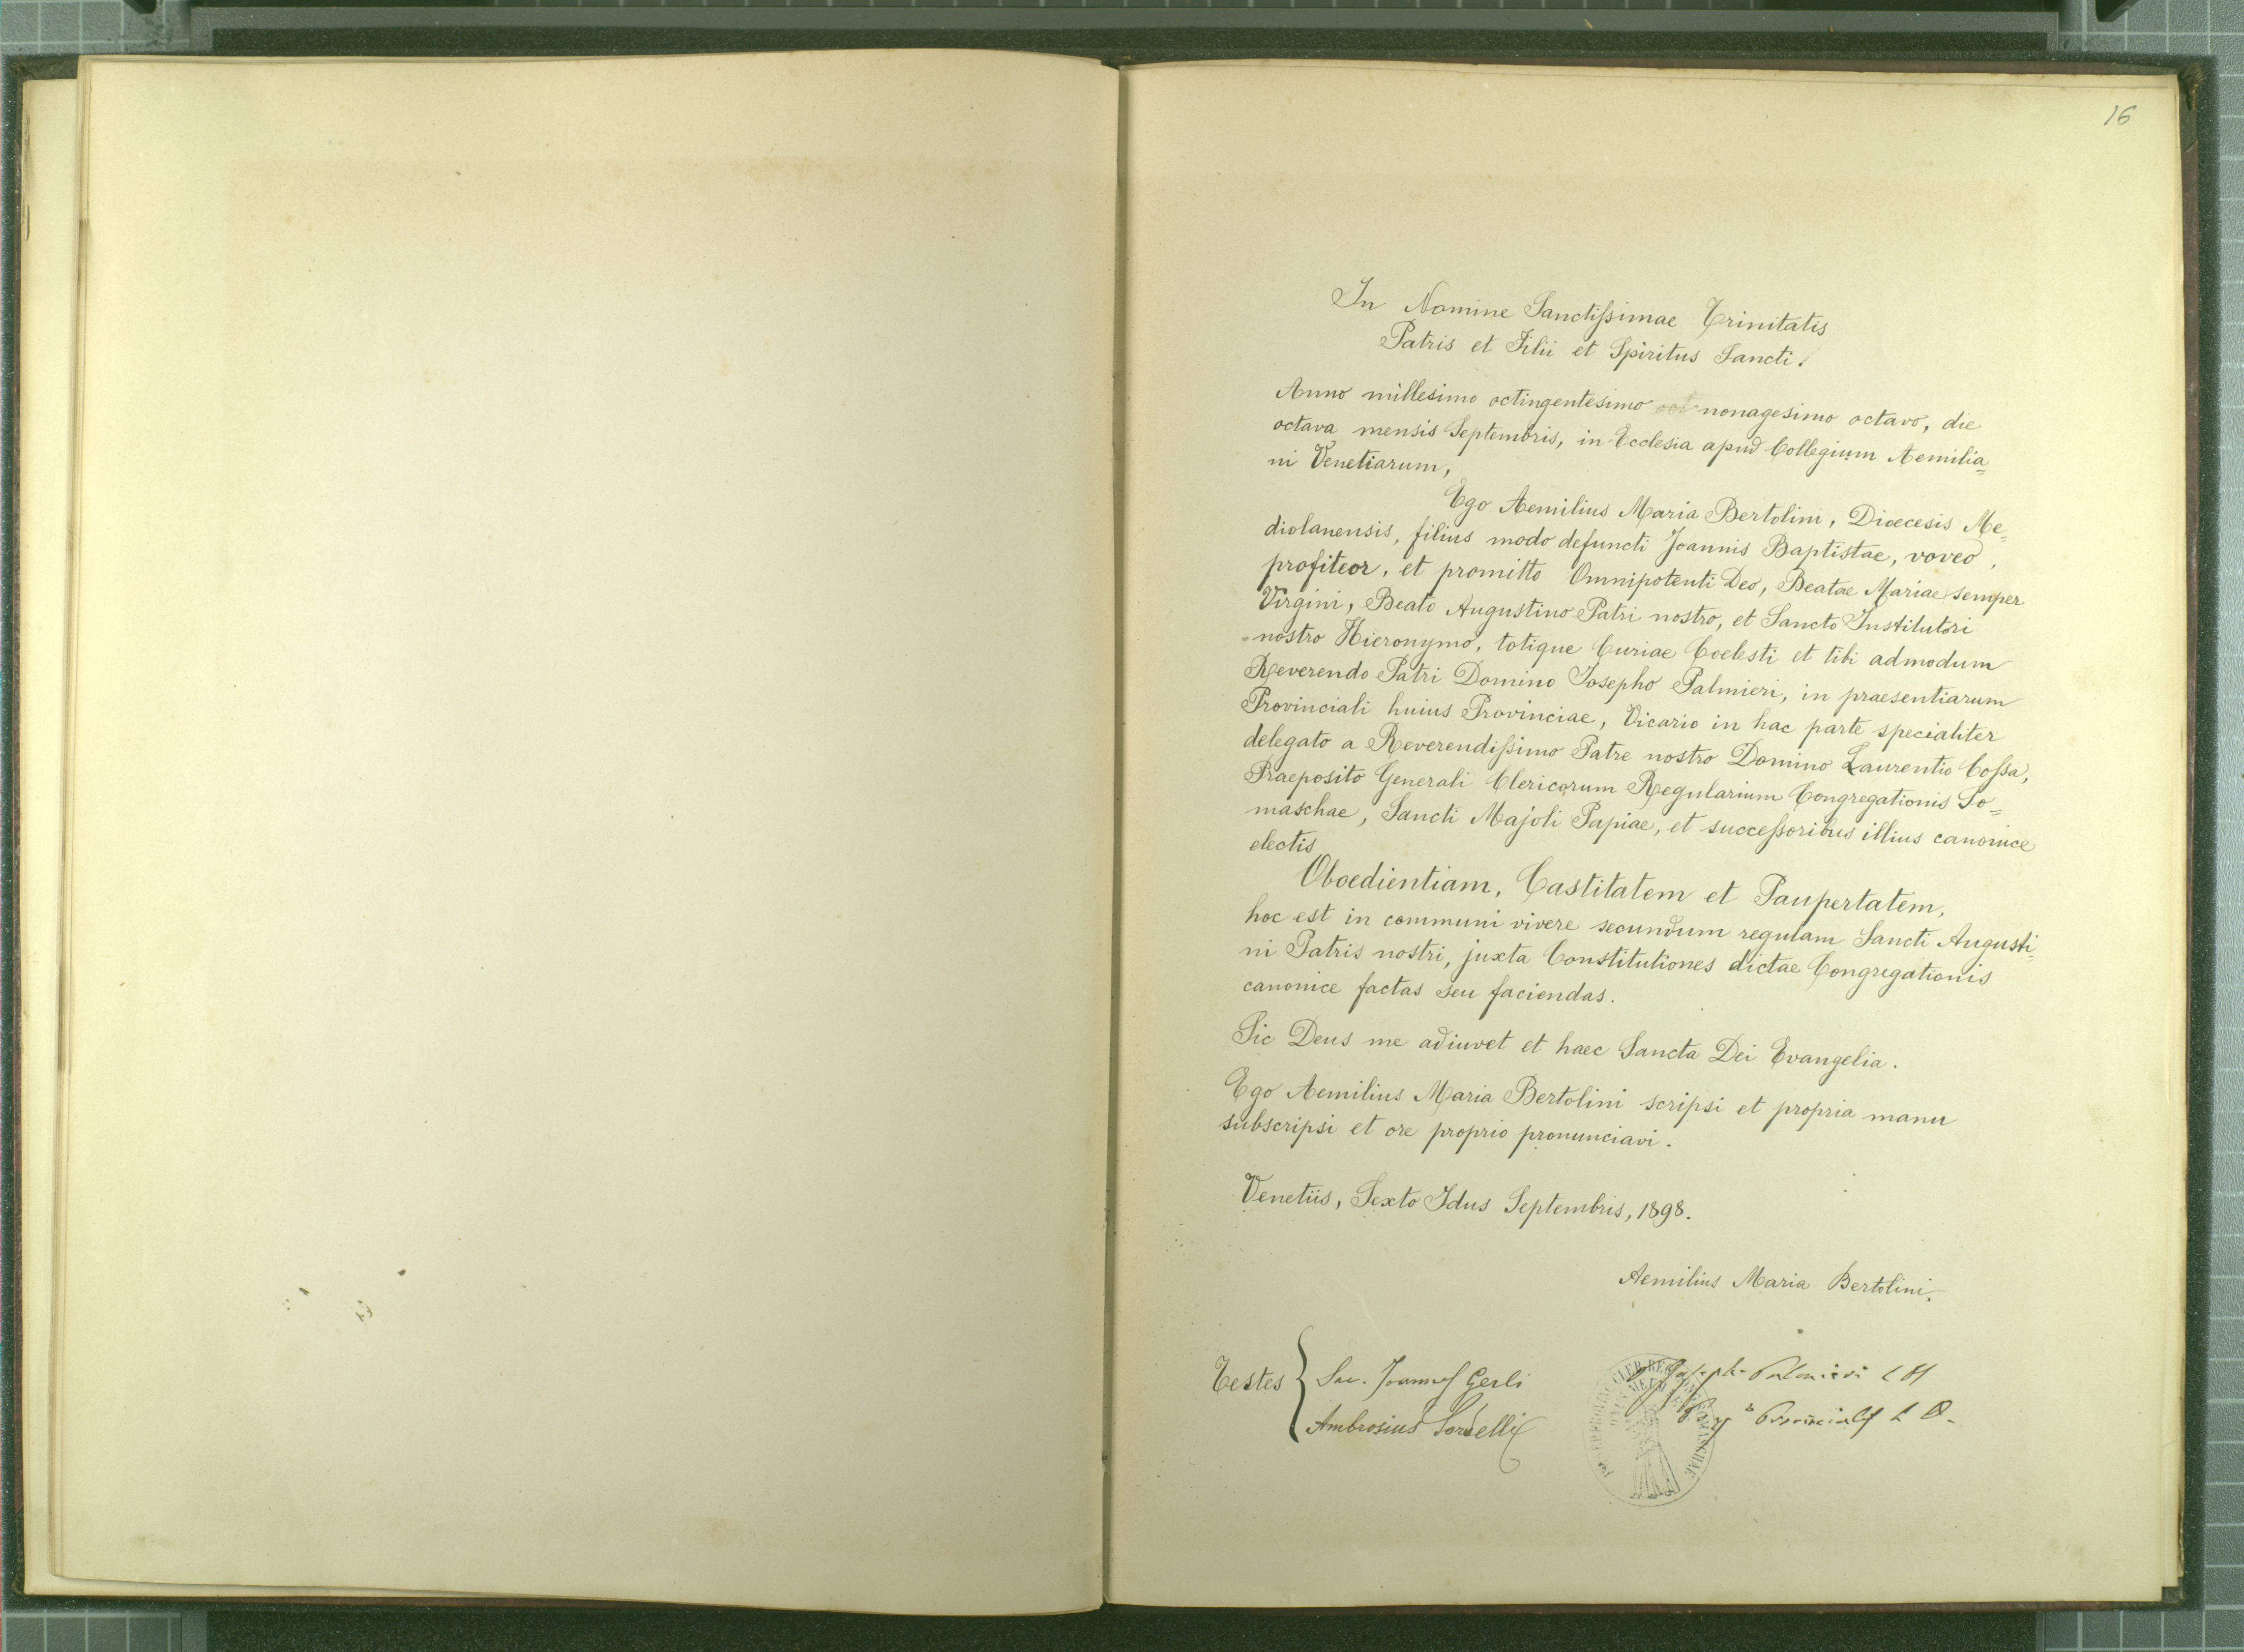 16
In Nomine Sanctissimae Trinitatis
Patris et Filii et Spiritus Sancti.
Anno millesimo octingentesimo nonagesimo octavo, die
octava mensis Septembris, in Ecclesia apud Collegium Aemilia=
ni Venetiarum,
Ego Aemilius Maria Bertolini, Dioecesis Me=
diolanensis, filius modo defuncti Joannis Baptistae, voveo,
profiteor, et promitto Omnipotenti Deo, Beatae Mariae semper
Virgini, Beato Augustino Patri nostro, et Sancto Institutori
nostro Hieronymo, totique Curiae Coelesti et tibi admodum
Reverendo Patri Domino Iosepho Palmieri, in praesentiarum
Provinciali huius Provinciae, Vicario in hac parte specialiter
delegato a Reverendissimo Patre nostro Domino Laurentio Cossa,
Praeposito Generali Clericorum Regularium Congregationis So=
maschae, Sancti Majoli Papiae, et successoribus illius canonice
electis
Oboedientiam, Castitatem et Paupertatem,
hoc est in communi vivere secundum regulam Sancti Augusti=
ni Patris nostri, juxta Constitutiones dictae Congregationis
canonice factas seu faciendas.
Sic Deus me adiuvet et haec Sancta Dei Evangelia.
Ego Aemilius Maria Bertolini scripsi et propria manu
subscripsi et ore proprio pronunciavi.
Venetiis, Sexto Idus Septembris, 1898.
Aemilius Maria Bertolini.
Testes
Sac. Joannes Gerli
Ambrosius Sordelli
Palmieri